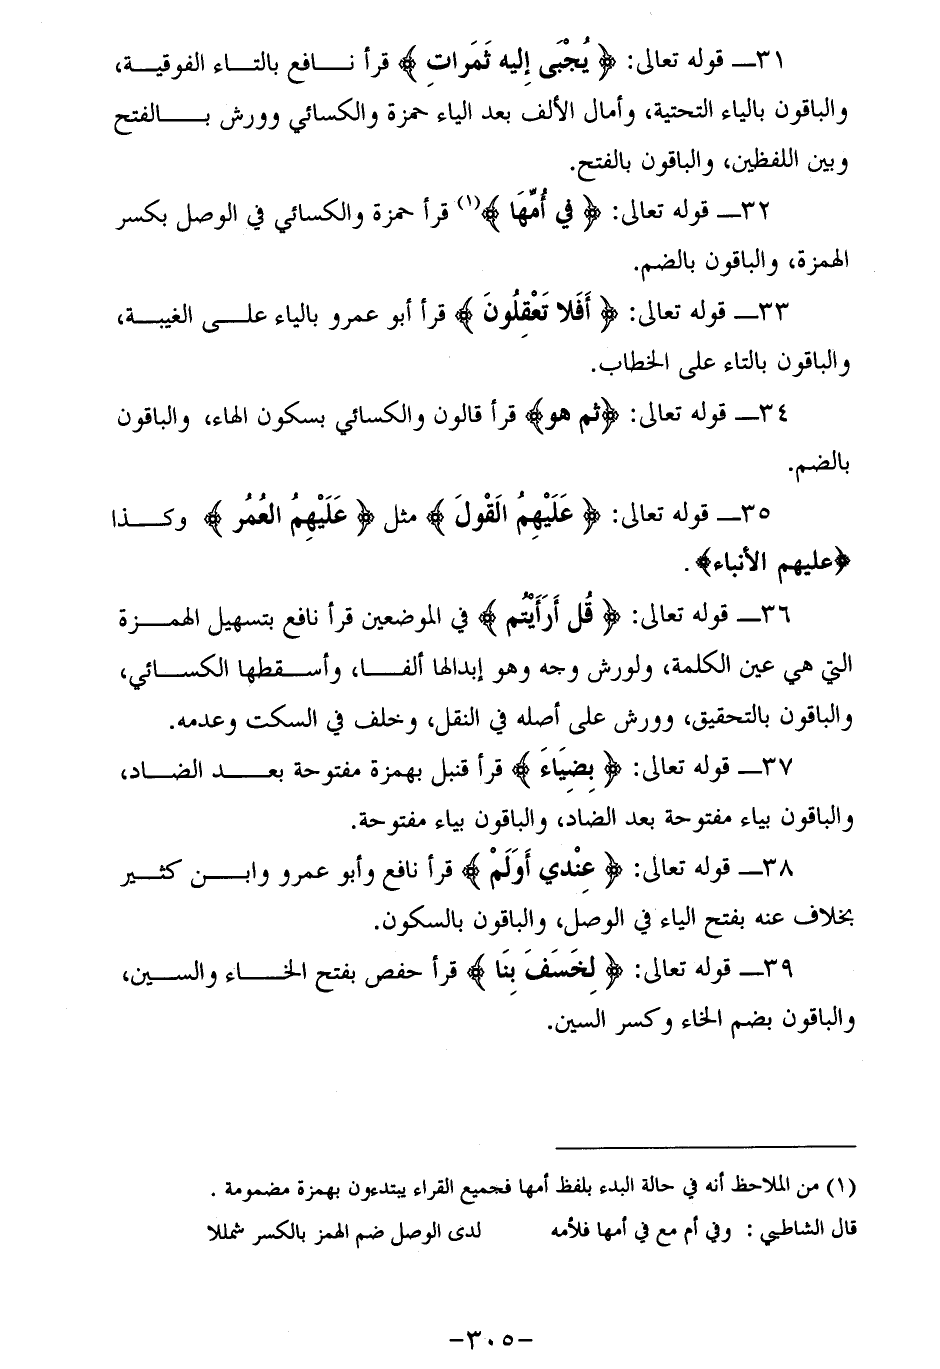 ٣١ــ قوله تعالى: ﴿ يُجْبَى إِليه ثَمَرات ﴾ قرأ نـــافع بالتـــاء الفوقيـــة،
والباقون بالياء التحتية، وأمال الألف بعد الياء حمزة والكسائي وورش بـــالفتح
وبين اللفظين، والباقون بالفتح.
٣٢ــ قوله تعالى: ﴿ في أُمِّهَا ﴾(١) قرأ حمزة والكسائي في الوصل بكسر
الهمزة، والباقون بالضم.
٣٣ــ قوله تعالى: ﴿ أَفَلا تَعْقِلُونَ ﴾ قرأ أبو عمرو بالياء علـــى الغيبـــة،
والباقون بالتاء على الخطاب.
٣٤ــ قوله تعالى: ﴿ثم هو﴾ قرأ قالون والكسائي بسكون الهاء، والباقون
بالضم.
٣٥ــ قوله تعالى: ﴿ عَلَيْهِمُ الَقْولَ ﴾ مثل ﴿ عَلَيْهِمُ العُمُر ﴾ وكـــذا
﴿عليهم الأنباء﴾ .
٣٦ــ قوله تعالى: ﴿ قُل أرَأَيْتُم ﴾ في الموضعين قرأ نافع بتسهيل الهمـــزة
التي هي عين الكلمة، ولورش وجه وهو إبدالها ألفـــا، وأســـقطها الكســـائي،
والباقون بالتحقيق، وورش على أصله في النقل، وخلف في السكت وعدمه.
٣٧ــ قوله تعالى: ﴿ بِضِيَاءَ ﴾ قرأ قنبل بهمزة مفتوحة بعـــد الضـــاد،
والباقون بياء مفتوحة بعد الضاد، والباقون بياء مفتوحة.
٣٨ــ قوله تعالى: ﴿ عِنْدي أَوَلَمْ ﴾ قرأ نافع وأبو عمرو وابـــن كثـــير
بخلاف عنه بفتح الياء في الوصل، والباقون بالسكون.
٣٩ــ قوله تعالى: ﴿ لخَسَفَ بِنَا ﴾ قرأ حفص بفتح الخـــاء والســـين،
والباقون بضم الخاء وكسر السين.
(١) من الملاحظ أنه في حالة البدء بلفظ أمها فجميع القراء يبتدءون بهمزة مضمومة .
قال الشاطبي : وفي أم مع في أمها فلأمه لدى الوصل ضم الهمز بالكسر شمللا
-٣٠٥-